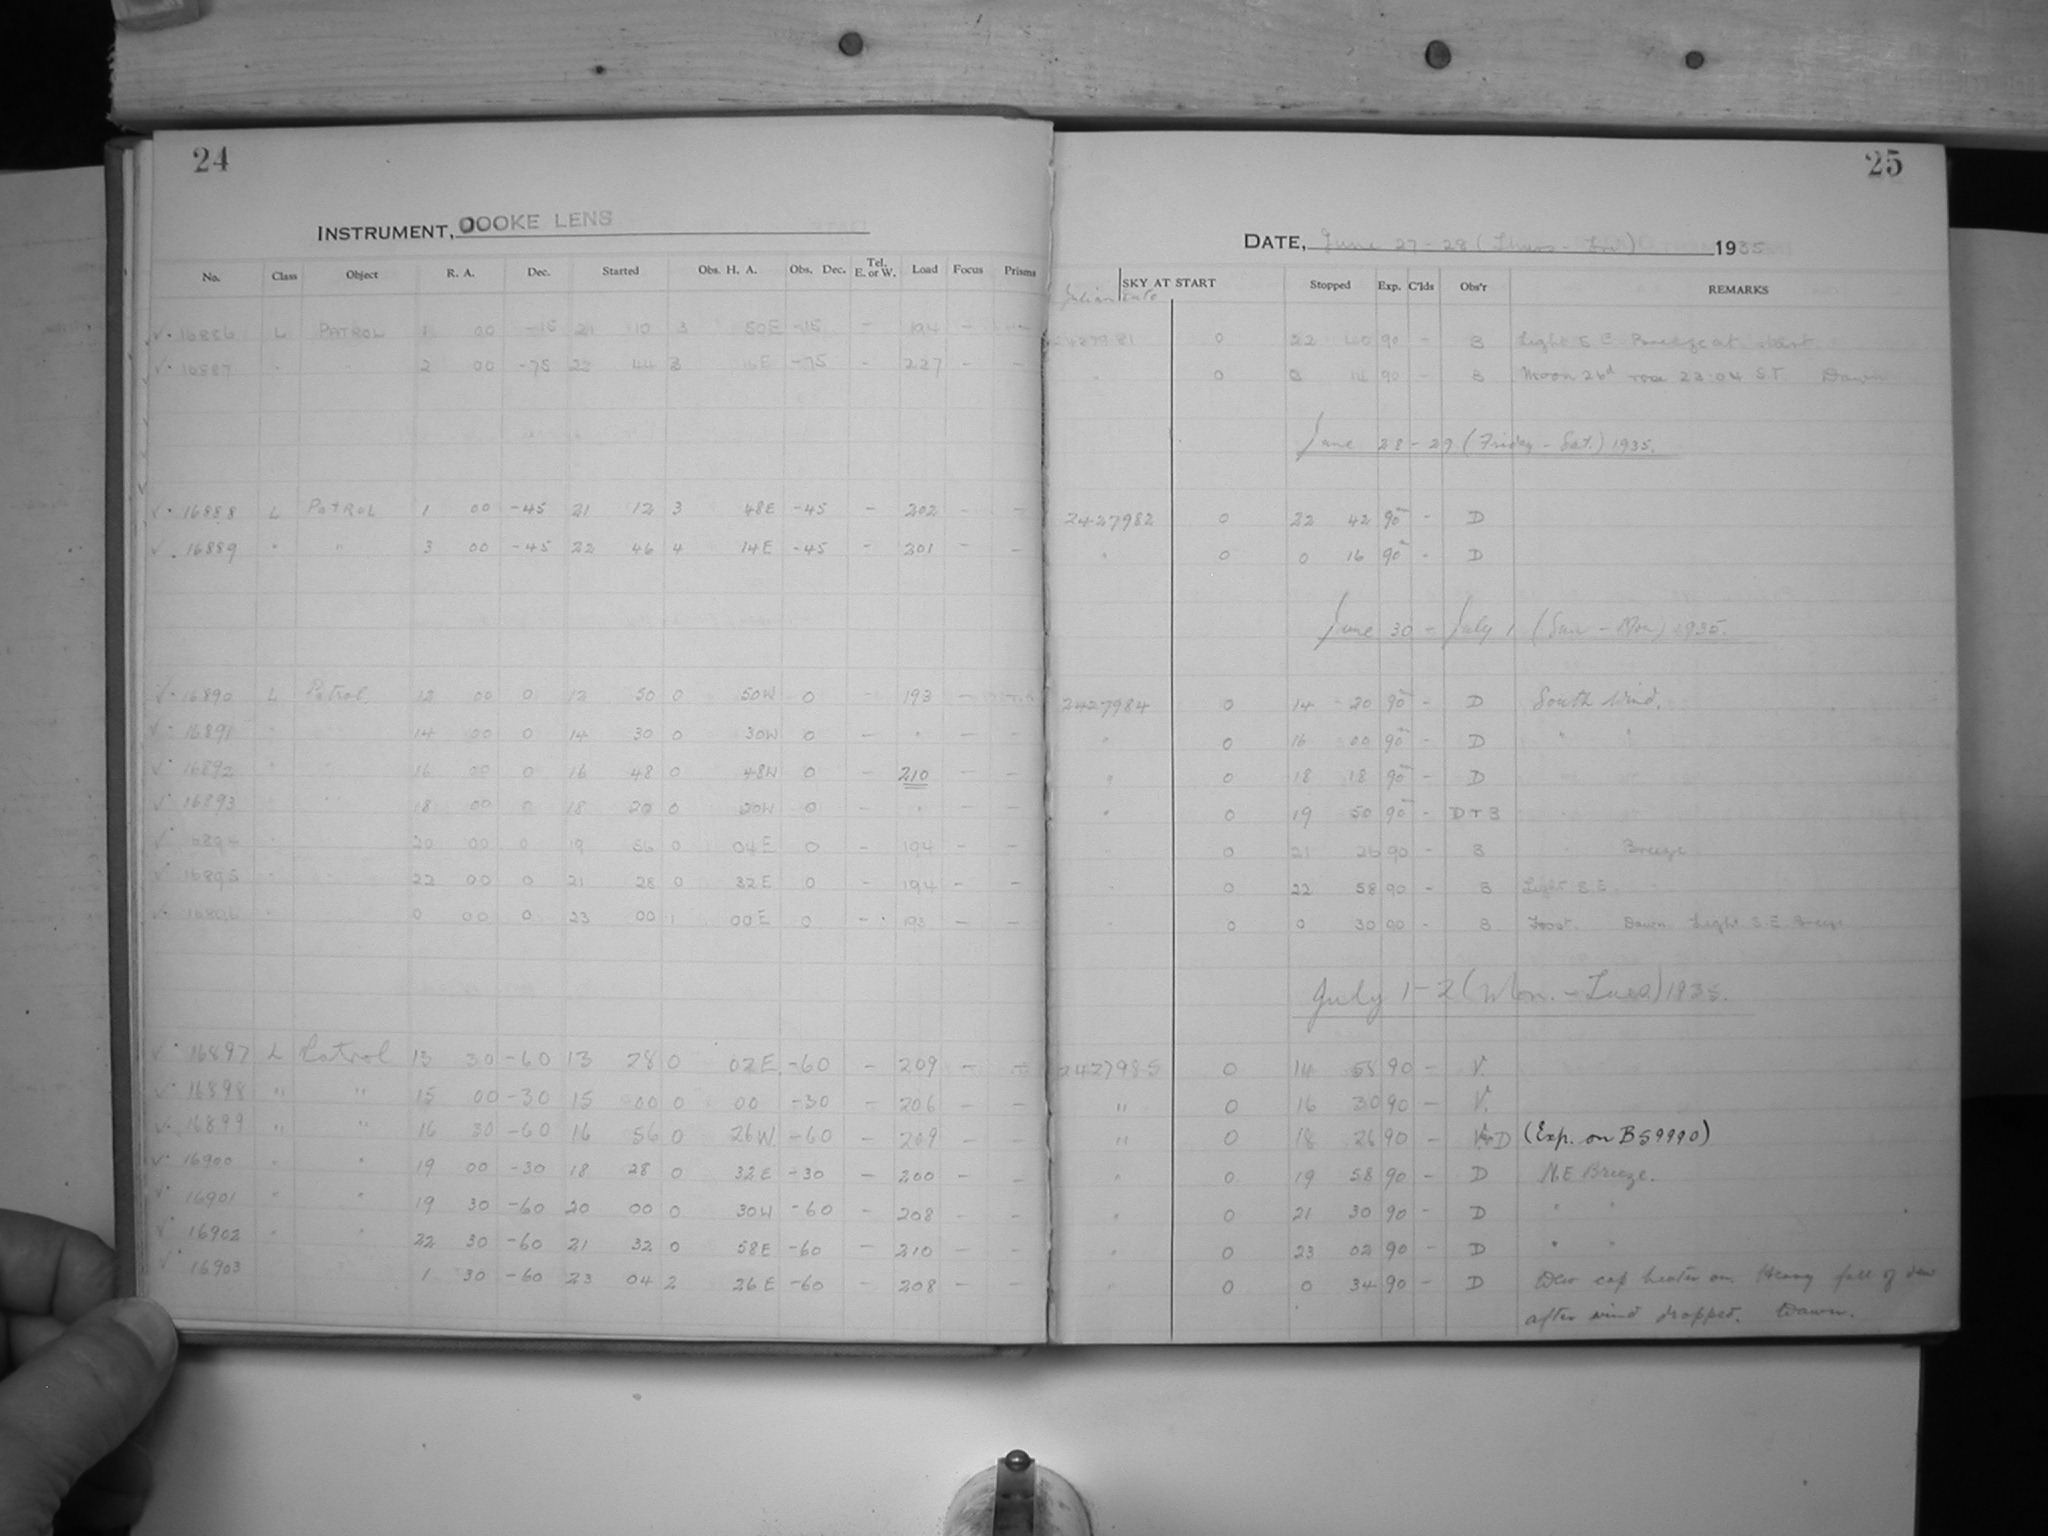 24
INSTRUMENT, COOKE LENS
No. Class Object R. A. Dec. Started Obs. H. A. Obs. Dec. Tel. E. or W. Load Focus Prisms
✓· 16886 L PATROL 1 00 -15 21 10 3 50E -15 - 194 -
✓· 16887 " " 2 00 -75 22 44 3 16E -75 - 227 - -
✓· 16888 L PATROL 1 00 -45 21 12 3 48E -45 - 202 - -
✓· 16889 " " 3 00 -45 22 46 4 14E -45 - 201 - -
✓· 16890 L Patrol 12 00 0 12 50 0 50W 0 - 193 -
✓· 16891 " " 14 00 0 14 30 0 30W 0 - " - -
✓· 16892 " " 16 00 0 16 48 0 48W 0 - 210 - -
✓· 16893 " " 18 00 0 18 20 0 20W 0 - " - -
✓· 16894 " " 20 00 0 19 56 0 04E 0 - 194 - -
✓· 16895 " " 22 00 0 21 28 0 32E 0 - 194 - -
✓· 16896 " " 0 00 0 23 00 1 00E 0 - 193 - -
✓· 16897 L Patrol 13 30 -60 13 28 0 02E -60 - 209 - -
✓· 16898 " " 15 00 -30 15 00 0 00 -30 - 206 - -
✓· 16899 " " 16 30 -60 16 56 0 26W -60 - 209 - -
✓· 16900 " " 19 00 -30 18 28 0 32E -30 - 200 - -
✓· 16901 " " 19 30 -60 20 00 0 30W -60 - 208 - -
✓· 16902 " " 22 30 -60 21 32 0 58E -60 - 210 - -
✓· 16903 1 30 -60 23 04 2 26E -60 - 208 - -
25
DATE, June 27-28 (Thurs - Fri) 1935
Julian Date SKY AT START Stopped Exp. C'lds Obs'r REMARKS
2427981 0 22 40 90 - B Light S E Breeze at start
" 0 0 14 90 - B Moon 26d rose 23:04 S.T. Dawn
June 28-29 (Friday - Sat.) 1935.
2427982 0 22 42 90 - D
" 0 0 16 90 - D
June 30 - July 1 (Sun - Mon) 1935.
2427984 0 14 20 90 - D South Wind.
" 0 16 00 90 - D " "
" 0 18 18 90 - D
" 0 19 50 90 - D+B
" 0 21 26 90 - B " Breeze
" 0 22 58 90 - B Light S E
" 0 0 30 90 - B Frost. Dawn Light S E Breeze
July 1-2 (Mon. - Tues.) 1935.
2427985 0 14 58 90 - V.
" 0 16 30 90 - V.
" 0 18 26 90 - D (Exp. on B59990)
" 0 19 58 90 - D N.E Breeze.
" 0 21 30 90 - D " "
" 0 23 02 90 - D " "
0 0 34 90 - D Dew cap heater on. Heavy fall of dew
after wind dropped. Dawn.